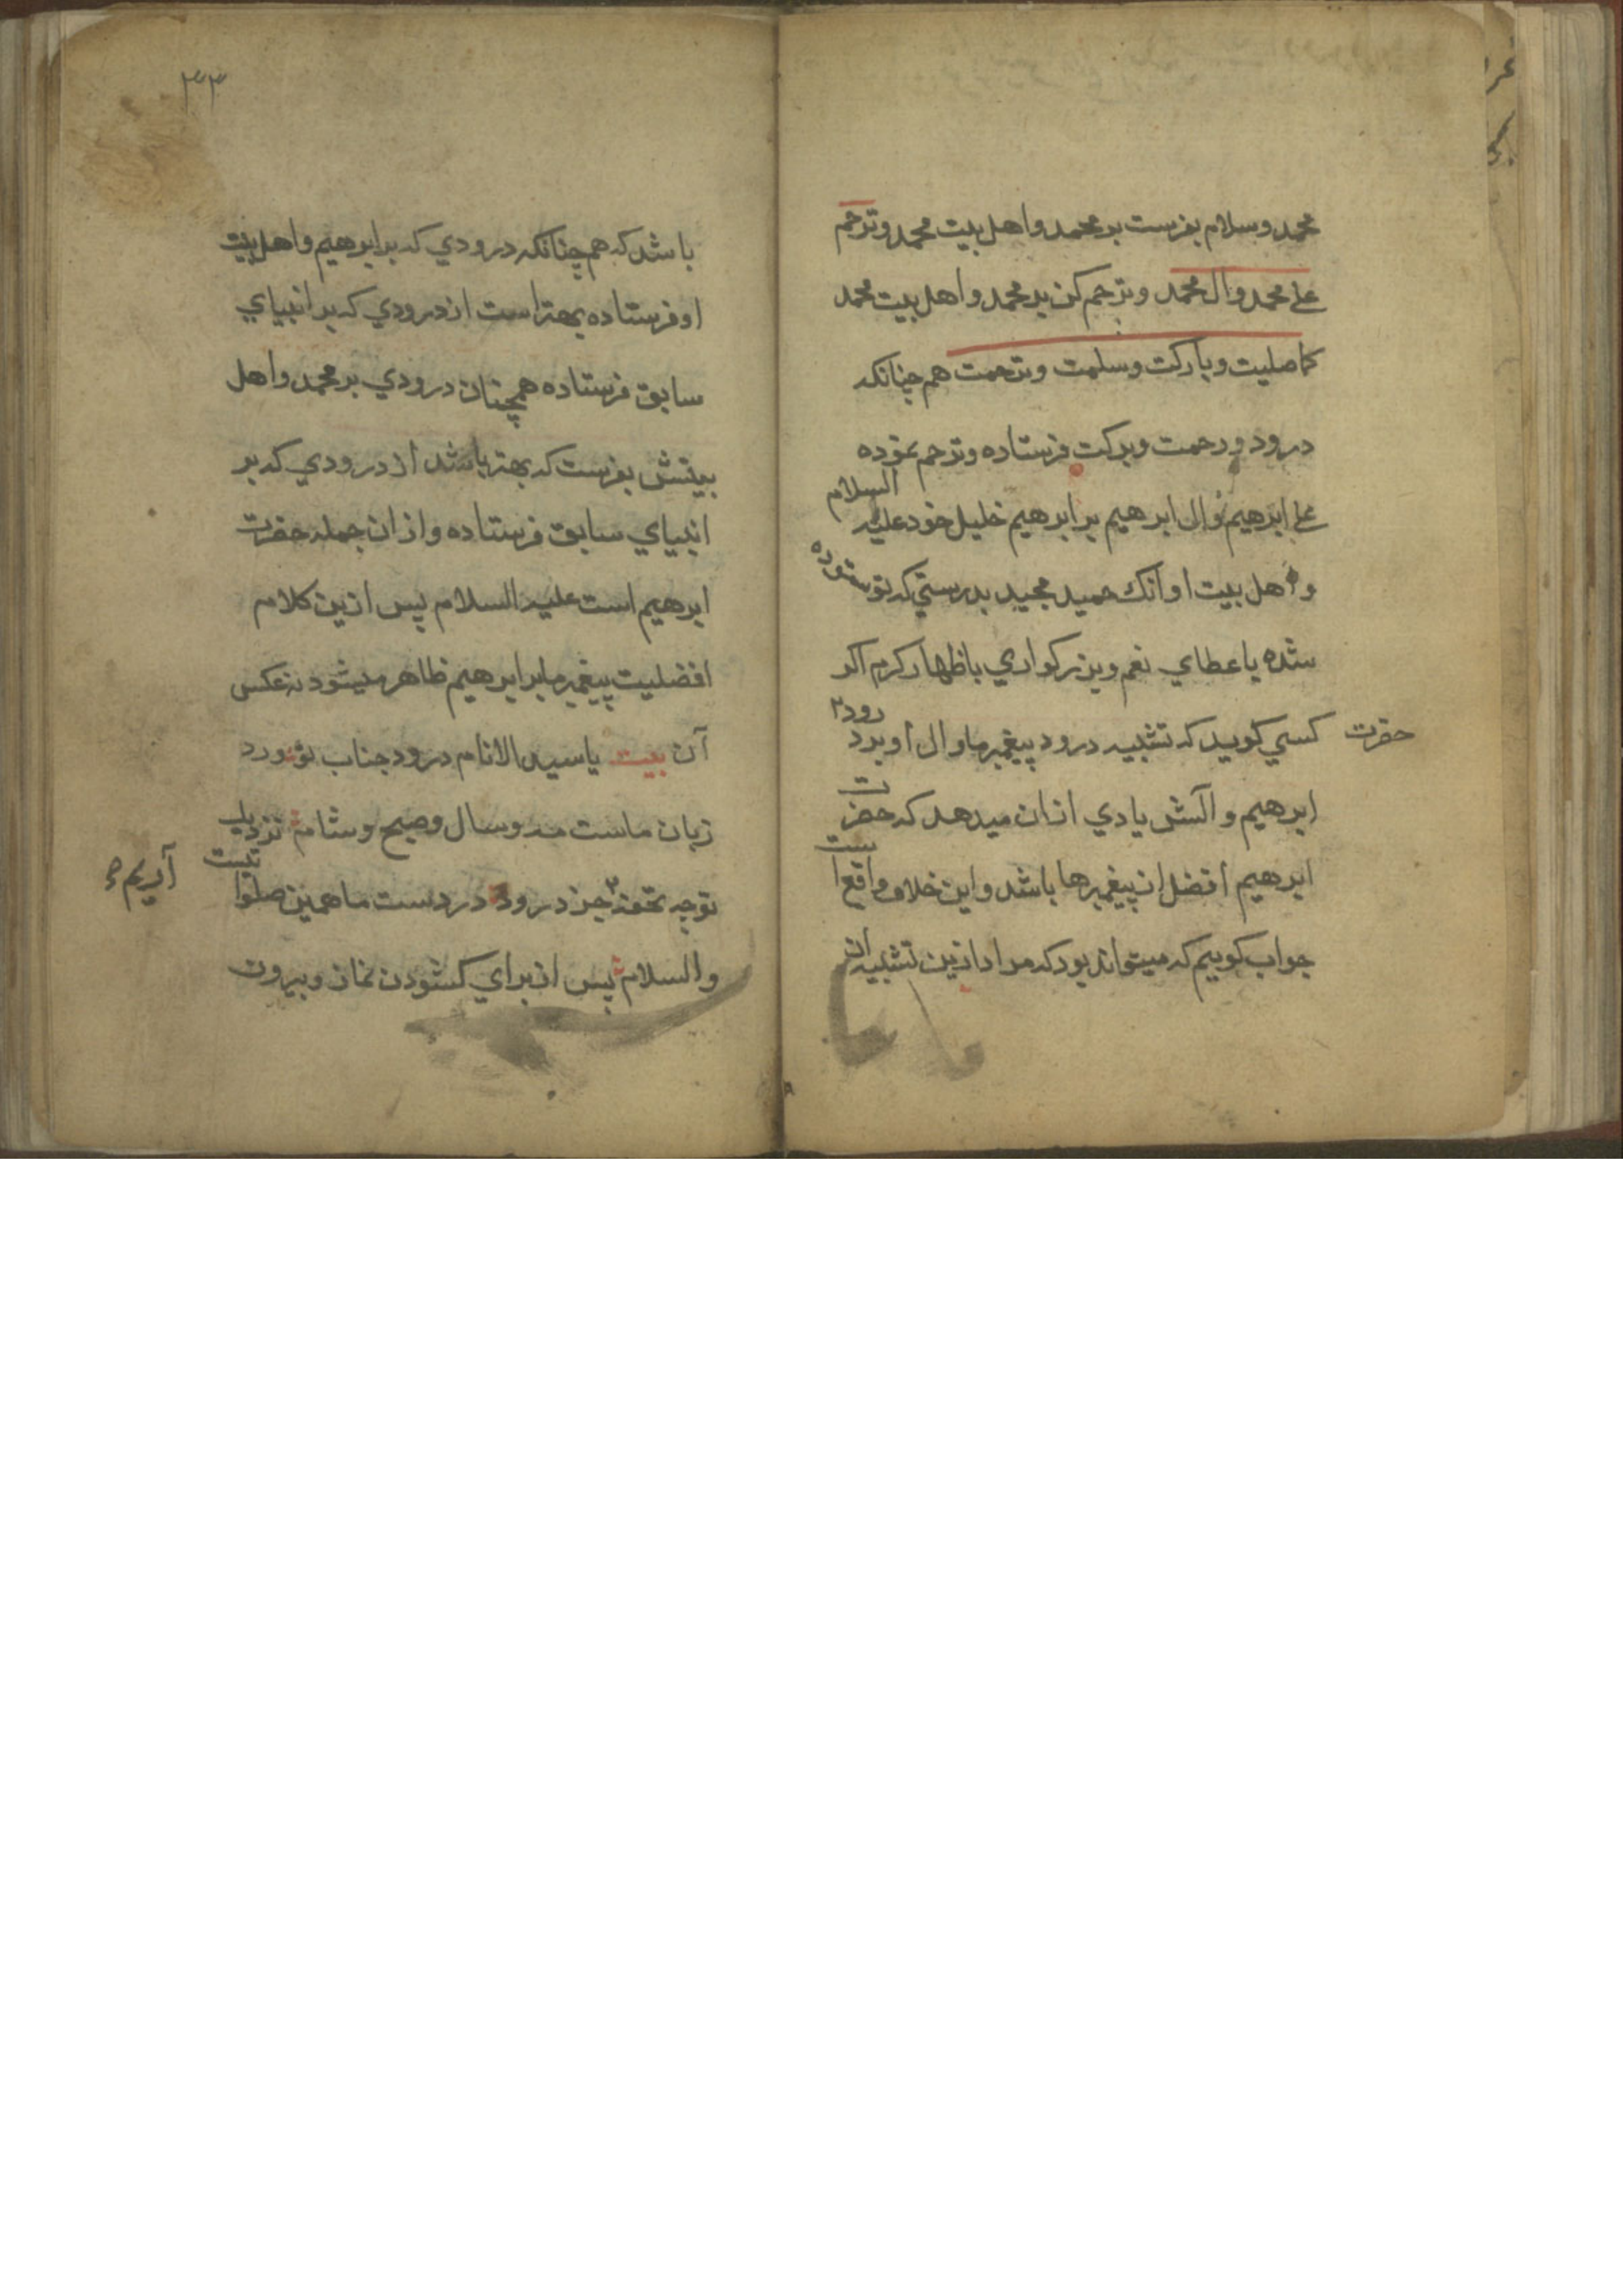 محمد وسلام بفرست بر محمد واهل بيت محمد وترحم
على محمد وال محمد وترحم كن بر محمد واهل بيت محمد
كما صليت وباركت وسلمت وترحمت هم چنانكه
درود ورحمت وبركت فرستاده وترحم نموده
على ابرهيم وال ابرهيم بر ابرهيم خليل خود عليه السلام
و اهل بيت او انك حميد مجيد بدرستي كه تو ستوده
شده باعطاي نعم وبزركواري باظهار كرم اكر
حضرت كسي كويد كه تشبيه درود پيغمبر ما وال او بدرود
ابرهيم و آلش يادي ازان ميدهد كه حضرت
ابرهيم افضل از پيغمبر ها باشد واين خلاف واقع است
جواب كوييم كه ميتواند بود كه مراد ازين تشبيه ان
٣٣
باشد كه هم چنانكه درودي كه بر ابرهيم واهل بيت
او فرستاده بهتر است از درودي كه بر انبياي
سابق فرستاده همچنان درودي بر محمد واهل
بيتش بفرست كه بهتر باشد از درودي كه بر
انبياي سابق فرستاده واز ان جمله حضرت
ابرهيم است عليه السلام پس ازين كلام
افضليت پيغمبر ما بر ابرهيم ظاهر ميشود نه عكس
آن بيت ياسيد الانام درود جناب تو ورد
زبان ماست مه وسال وصبح وشام نزديك
توچه تحفه جز درود در دست ما همين صلواتست
آريم
والسلام پس از براي كشودن نماز وبيرون